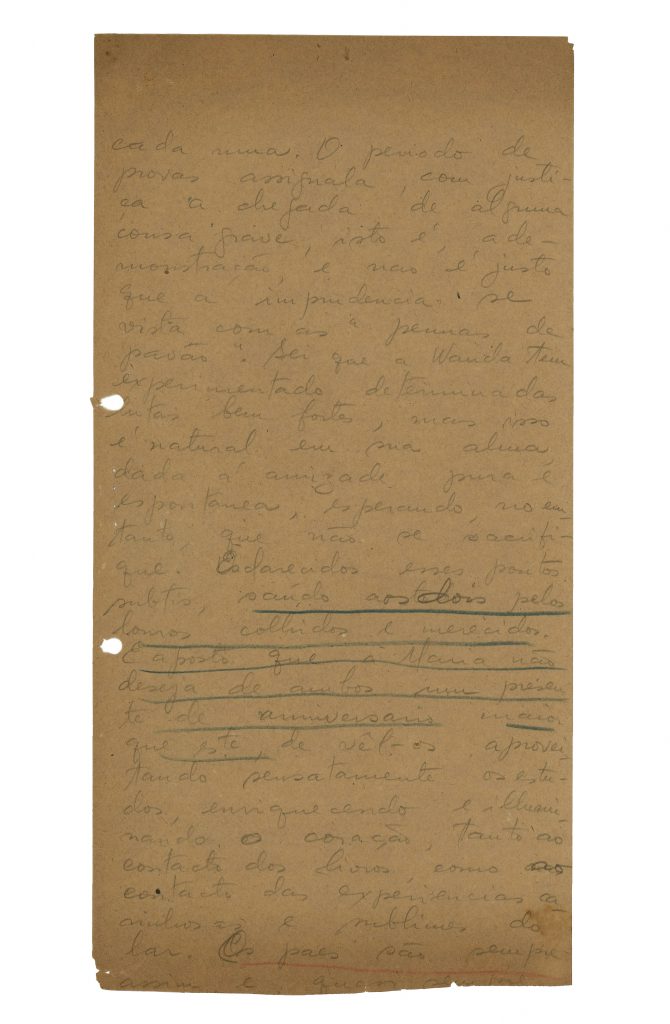 cada uma. O periodo de
provas assignala, com justi-
ça "a chegada de alguma
cousa grave, isto é, a de-
monstração, e nao é justo
que a imprudencia se
vista com as "pennas de
pavão". Sei que a Wanda tem
experimentado determinadas
lutas bem fortes, mas isso
é natural em sua alma,
dada á amizade pura e
espontanea, esperando, no en-
tanto, que não se sacrifi-
que. Esclarecidos esses pontos
subtis, saúdo aos dois pelos
louros colhidos e merecidos.
E aposto que a Maria não
deseja de ambos um presen
te de anniversario maior
que este, de vêl-os aprovei
tando sensatamente os estu-
dos, enriquecendo e illumi
nando o coração, tanto ao
contacto dos livros, como ao
contacto das experiencias ca
rinhosas e sublimes do
lar. Os paes são sempre
assim e, quasi sempre